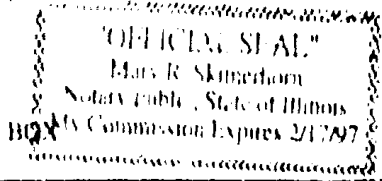 "OFFICIAL SEAL"
Mary R.
Notary Public, State of Illinois
BOX My Commission Expires 2/17/97